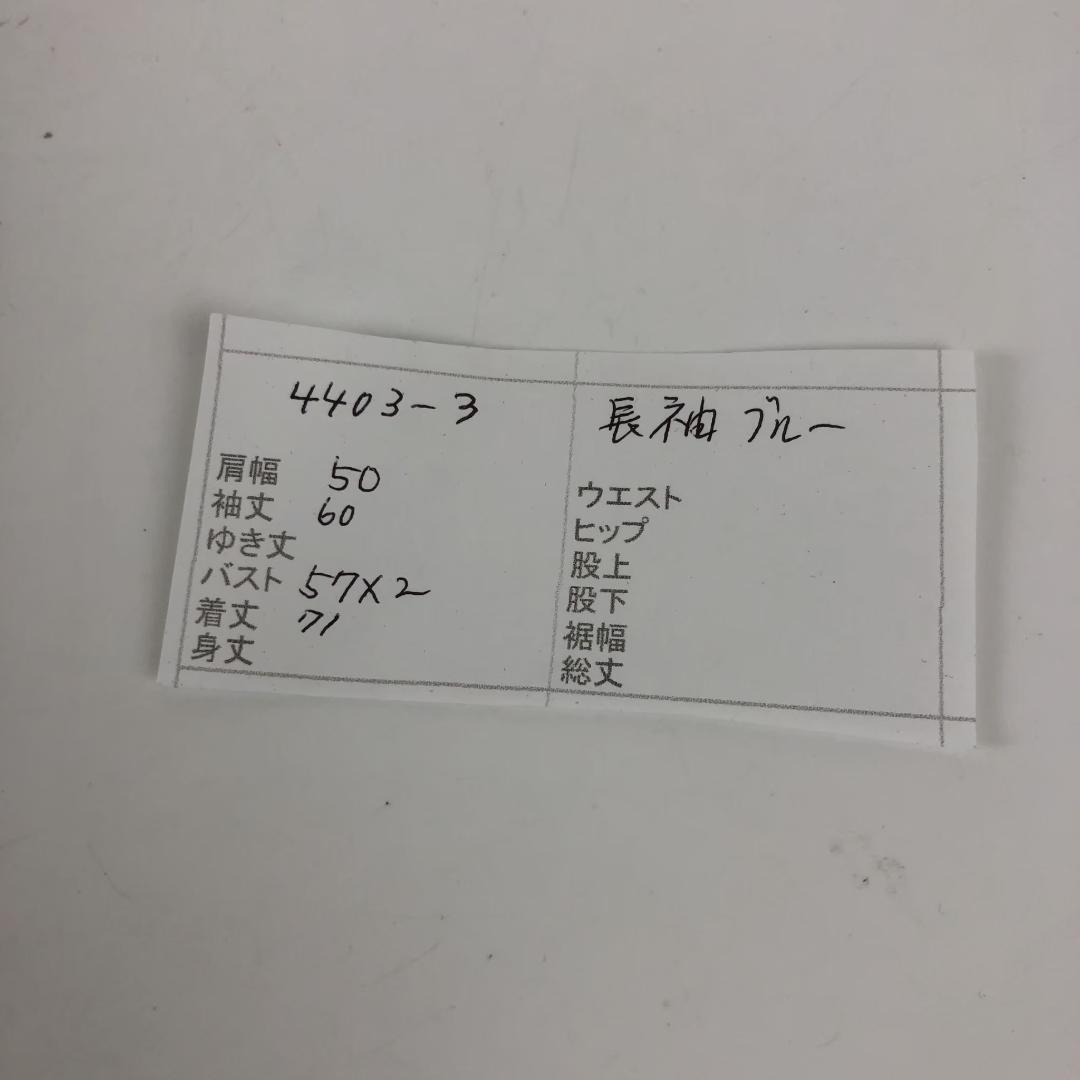 4403-3
肩幅 50
袖丈 60
ゆき丈
バスト 57×2
着丈 71
身丈
長袖 ブルー
ウエスト
ヒップ
股上
股下
裾幅
総丈